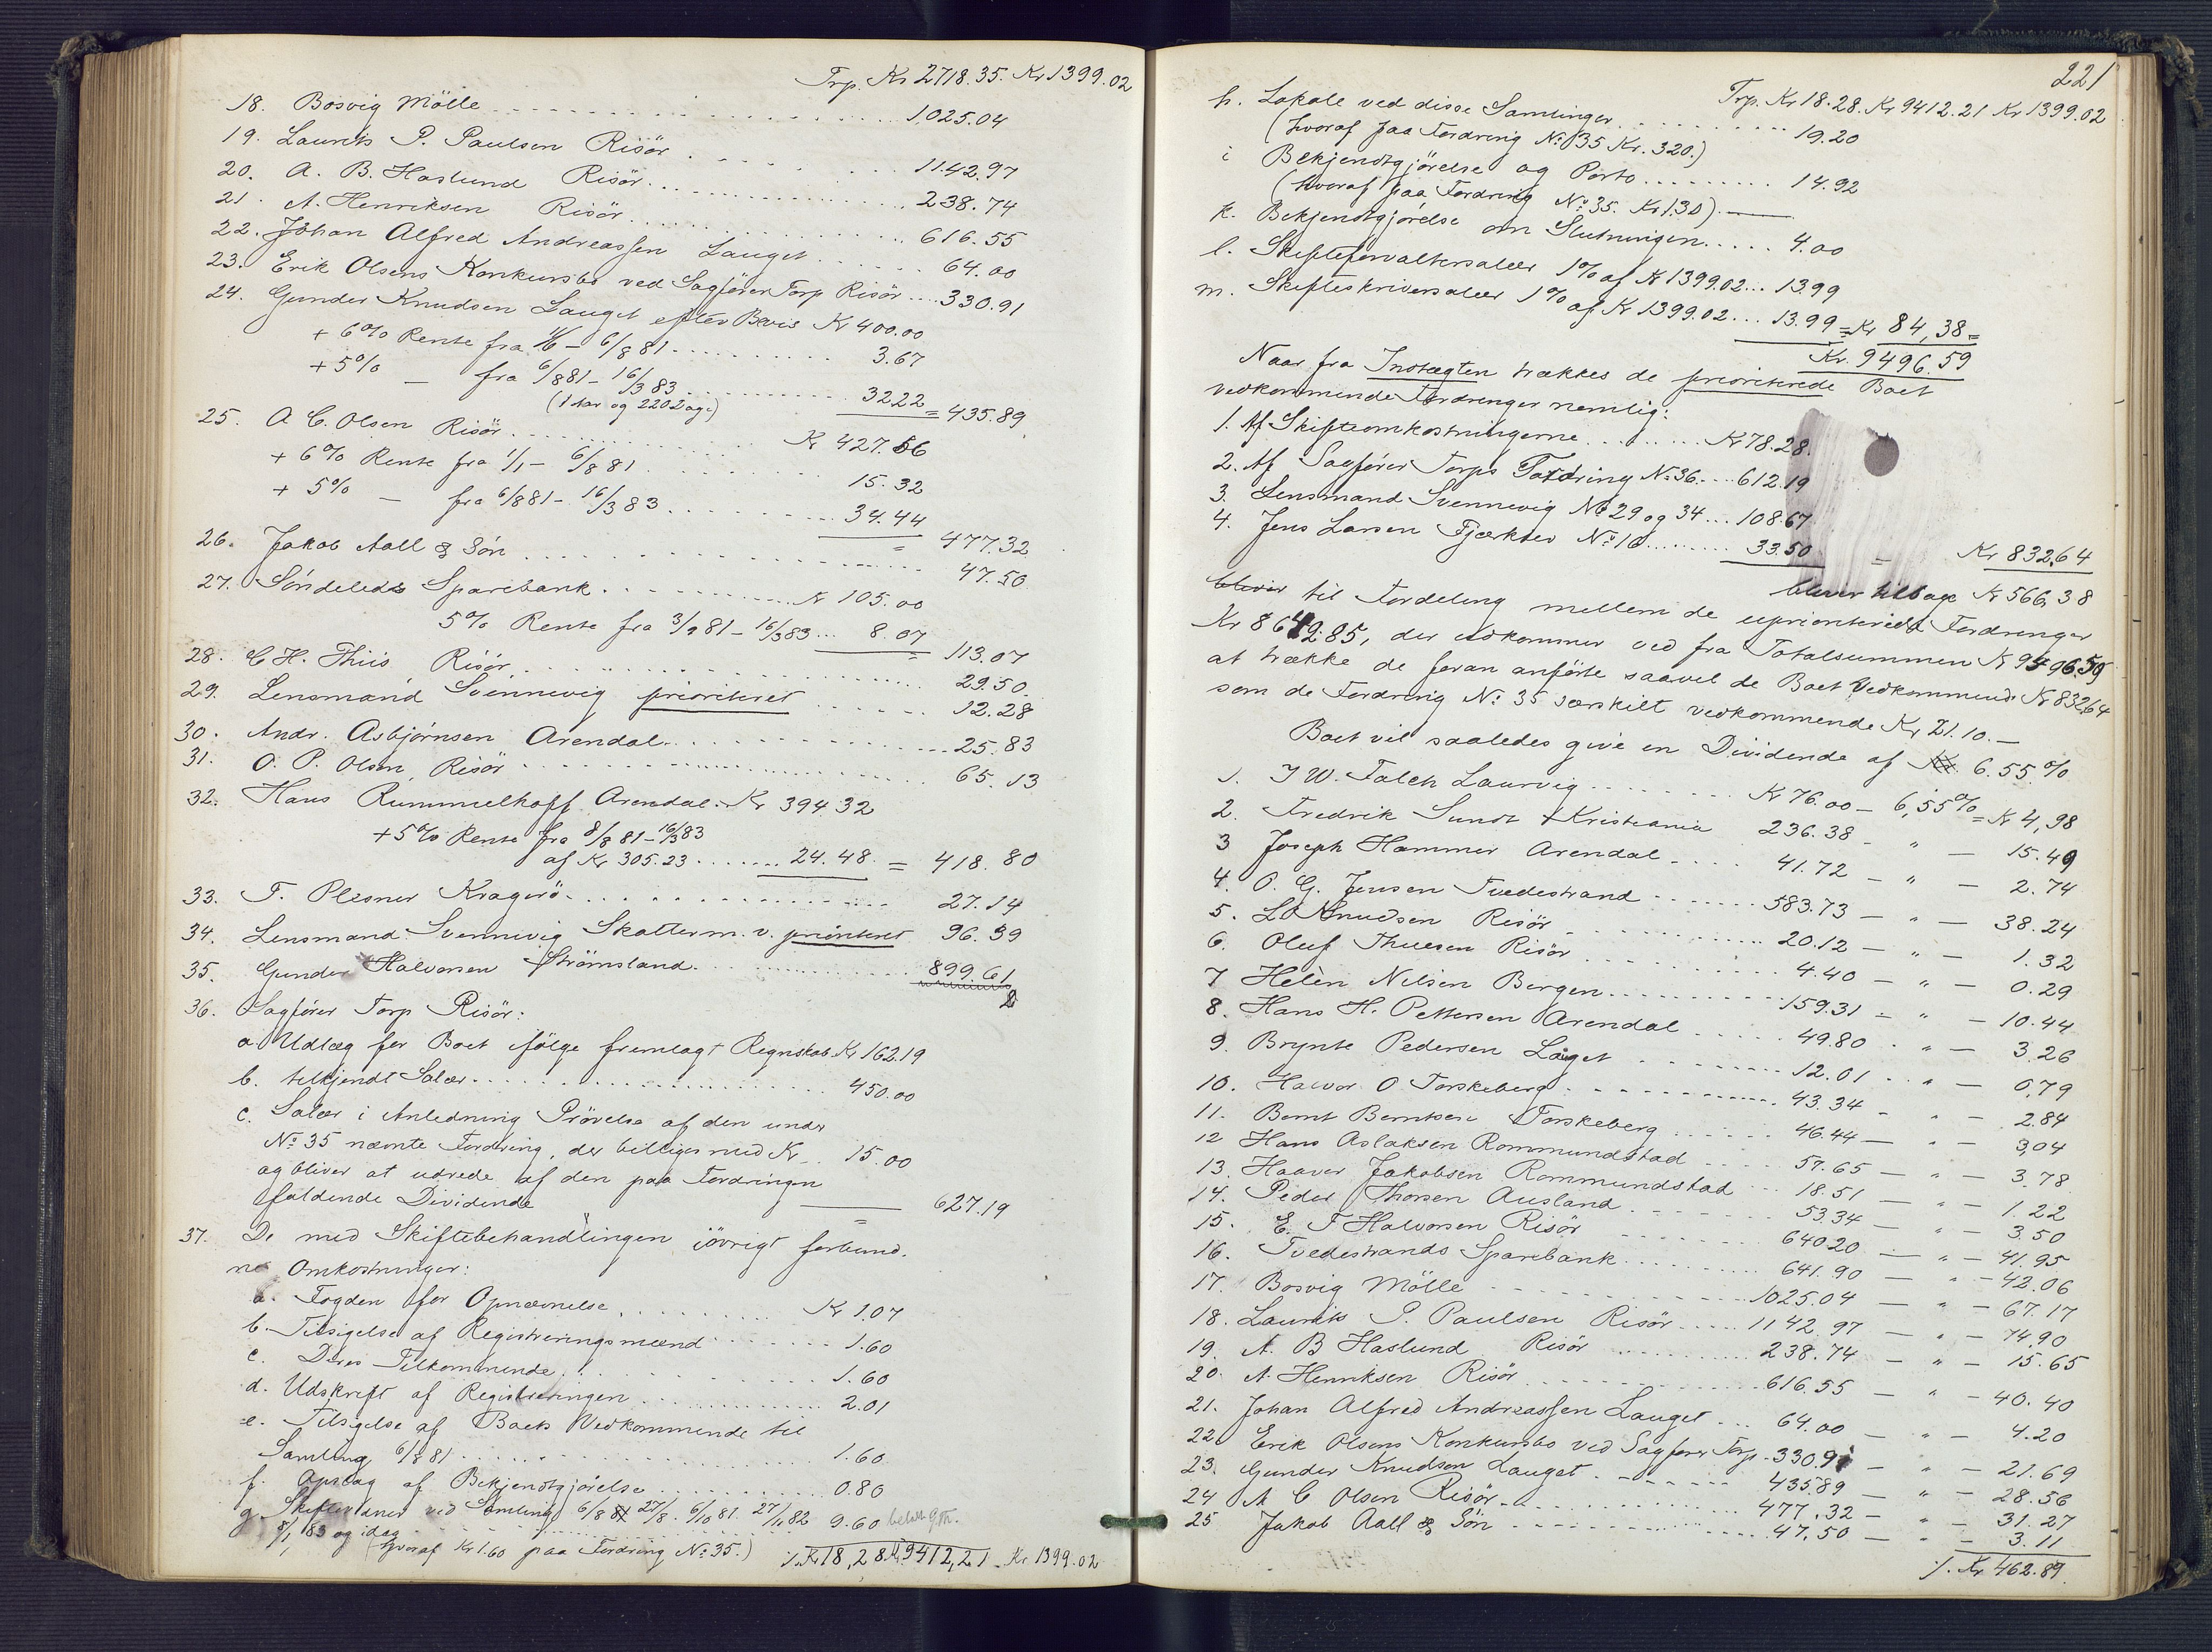 Trp. Kr 2718.35. Kr 1399.02
18. Bosvig Mölle 1025.04
19. Laurits P. Paulsen Risör 1142.97
20. A. B. Haslund Risör 238.74
21. A. Henriksen Risör 616.55
22. Johan Alfred Andreassen Lauget 64.00
23. Erik Olsens Konkursbo ved Sagfører Torp Risör 330.91
24. Gunder Knudsen Lauget efter Bevis Kr 400.00
+ 6% Rente fra 1/6 - 6/8 81 3.67
+ 5% — fra 6/8 81 - 16/3 83 32.22 = 435.89
(1 Aar og 220 Dage)
25. A C. Olsen Risör Kr 427.56
+ 6% Rente fra 1/1 - 6/8 81 15.32
+ 5% — fra 6/8 81 - 16/3 83 34.44 = 477.32
26. Jakob Aall & Sön 47.50
27. Söndeleds Sparebank Kr 105.00
5% Rente fra 3/9 81 - 16/3 83 8.07 = 113.07
28. C. H. Thiis Risör 29.50
29. Lensmand Svennevig prioriteret 12.28
30. Andr. Asbjørnsen Arendal 25.83
31. O. P. Olsen, Risör 65.13
32. Hans Rummelhoff Arendal Kr 394.32
+ 5% Rente fra 8/8 81 - 16/3 83
af Kr 305.23 24.48 = 418.80
33. F. Plesner Kragerö 27.14
34. Lensmand Svennevig Skatter m. v. prioriteret 96.39
35. Gunder Halvorsen Strömsland 899.61
36. Sagfører Torp Risör:
a. Udlæg for Boet ifölge fremlagt Regnskab Kr 162.19
b. tilkjendt Salær 450.00
c. Salær i Anledning Prövelse af den under
No 35 nævnte Fordring, der billiges med Kr 15.00
og bliver at udrede af den paa Fordringen
faldende Dividende = 627.19
37. De med Skiftebehandlingen iövrigt forbund-
ne Omkostninger:
a. Fogden for Opnævnelse Kr 1.07
b. Tilsigelse af Registreringsmænd 1.60
c. Deres Tilkommende 1.60
d. Udskrift af Registreringen 2.01
e. Tilsigelse af Boets Vedkommende til
Samling 6/8 81 1.60
f. Opslag af Bekjendtgjørelse 0.80
g. Skiftevidner ved Samling 6/8 81 27/8. 6/10 81. 27/11 82 9.60
8/1 83 og idag
(hvoraf Kr 1.60 paa Fordring No 35.) /. Kr 18,28 Kr 9412,21 Kr 1399.02
221
Trp. Kr 18.28. Kr 9412.21 Kr 1399.02
h. Lokale ved disse Samlinger 19.20
(hvoraf paa Fordring No 35 Kr. 3.20.)
i Bekjendtgjörelse og Porto 14.92
(hvoraf paa Fordring No 35. Kr 1.30)
k. Bekjendtgjörelse om Slutningen 4.00
l. Skifteforvaltersalær 1% af Kr 1399.02 13.99
m. Skifteskriversalær 1% af Kr 1399.02 13.99 = Kr 84,38 =
Kr. 9496.59
Naar fra Indtægten trækkes de prioriterede Boet
vedkommende Fordringer nemlig:
1. Af Skifteomkostningerne Kr 78.28.
2. Af Sagfører Torps Fordring No 36 612.19
3. Lensmand Svennevig No 29 og 34 108.67
4. Jens Larsen Fjærkær No 16 33.50 — Kr 832.64
bliver tilbage Kr 566,38
bliver til Fordeling mellem de uprioriterede Fordringer
Kr 8642.85, der udkommer ved fra Totalsummen Kr 9496.59
at trække de foran anförte saavel de Boet Vedkommende Kr 832.64
som de Fordring No 35 særskilt vedkommende Kr 21.10. —
Boet vil saaledes give en Dividende af 6.55%
1. J W. Falch Laurvig Kr 76.00 — 6,55% = Kr 4,98
2. Fredrik Sundt Kristiania 236.38 - " — 15.49
3 Joseph Hammer Arendal 41.72 — " — 2.74
4. O. G. Jensen Tvedestrand 583.73 — " — 38.24
5. L Knudsen Risör 20.12 — " — 1.32
6. Oluf Thuesen Risör 4.40 — " — 0.29
7 Helèn Nilsen Bergen 159.31 — " — 10.44
8. Hans H. Pettersen Arendal 49.80 - " — 3.26
9. Brynte Pedersen Låget 12.01 - " — 0,79
10. Halvor O Torskeberg 43.34 - " — 2.84
11. Bernt Berntsen Torskeberg 46.44 — " — 3,04
12 Hans Aslaksen Rommundstad 57.65 — " — 3.78
13. Haaver Jakobsen Rommundstad 18.51 — " — 1.22
14. Peder Thorsen Ausland 53.34 — " — 3.50
15. E. F Halvorsen Risör 640.20 — " — 41.95
16. Tvedestrands Sparebank 641.90 — " — 42.06
17. Bosvig Mölle 1025.04 — " — 67.17
18. Laurits P. Paulsen Risör 1142.97 — " — 74,90
19. A. B Haslund Risör 238.74 — " — 15.65
20. A. Henriksen Risör 616.55 — " — 40.40
21. Johan Alfred Andreassen Lauget 64.00 — " — 4.20
22. Erik Olsens Konkursbo ved Sagfører Torp 330.91 — " — 21.69
23. Gunder Knudsen Lauget 435.89 — " — 28.56
24 A C Olsen Risör 477.32 — " — 31.27
25 Jakob Aall & Sön 47.50 — " — 3.11
/. Kr 462.89